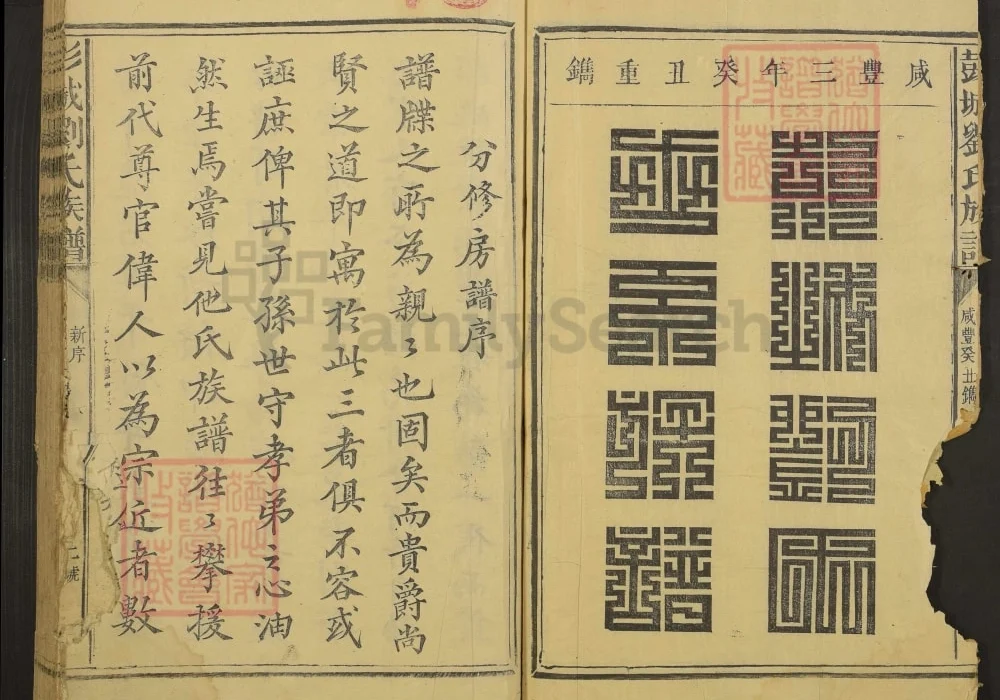 咸豐三年癸丑重鐫
彭城劉氏族譜
咸豐癸丑鐫
猶他家譜學會收藏
分修房譜序
譜牒之所為親〻也固矣而貴爵尚
賢之道即寓於此三者俱不容或
誣庶俾其子孫世守孝弟之心油
然生焉嘗見他氏族譜往〻攀援
前代尊官偉人以為宗近者數
彭城劉氏族譜
新序
號
猶他家譜學會收藏
FamilySearch